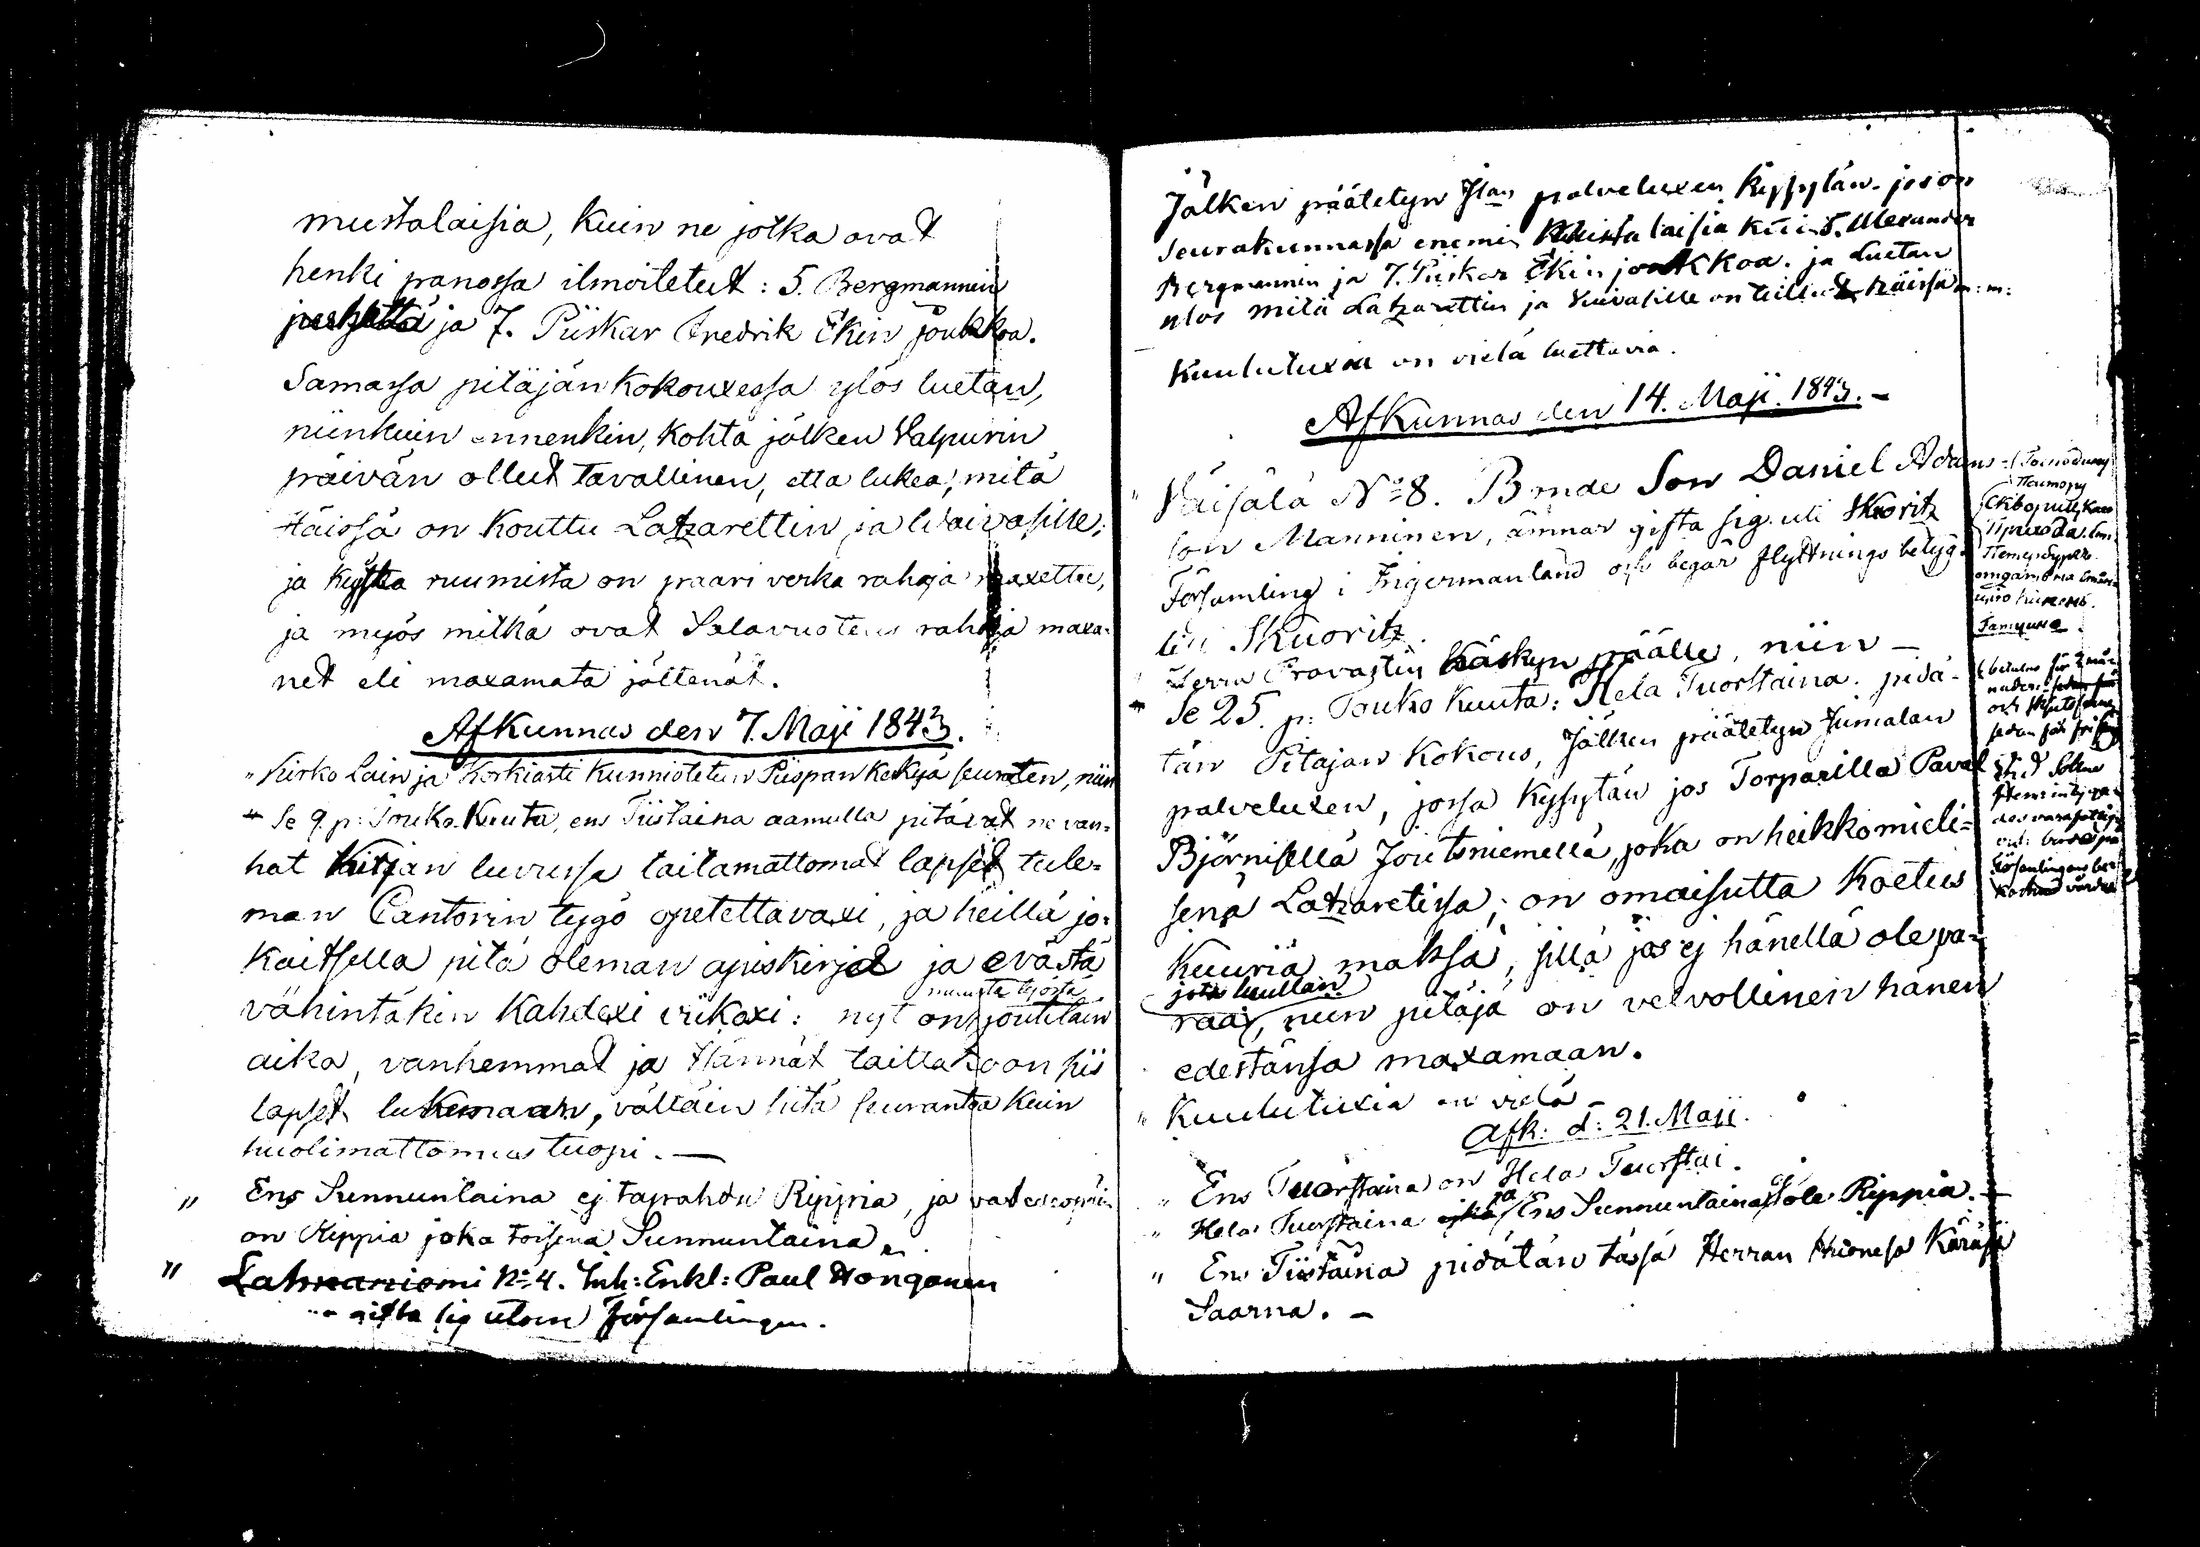 mustalaisia, kuin ne jotka ovat
henki panossa ilmoitetut: 5. Bergmannin
ja 7. Piiskar Fredrik Ekin joukkoa.
Samassa pitäjän kokouxessa ylös luetan,
niinkuin ennenkin, kohta jälken Valpurin
päivän ollut tavallinen, etta lukea, mitä
Häissä on kouttu Latzarettin ja Waivasille;
ja kustka ruumista on paari verka rahoja maxettu,
ja myös mitkä ovat Salavuoteus rahoja maxa-
net eli maxamata jättenät.
Afkunnas den 7. Maji 1843.
" Kirko Lain ja Korkiasti Kunnioitetun Piispan Keskyä seuraten, niin
" Se 9. p: Touko Kuuta, ens Tiistaina aamulla pitävät ne van-
hat kirjan luvussa taitamattomat lapset tule-
man Cantorin tygö opetettavaxi, ja heillä jo-
kaitsella pitä oleman apiskirjat ja evästä
muusta työstä
vähintäkin kahdexi viikoxi: nyt on joutilain
aika, vanhemmat ja Hännät taittakoon siis
lapset lukemaan, välttäin sitä seurantoa kuin
huolimattomuus tuopi. —
" Ens Sunnuntaina ej tapahdu Rippiä, ja
on Rippiä joka toisena Sunnuntaina.
" Lahnaniemi No 4. Inh: Enkl: Paul Honganen
gifta sig utom Församlingen.
Jälken päätetyn Jlan palveluxen kysytän jos on
seurakunnassa enemin Mustalaisia kuin 5. Alexander
Bergmannin ja 7. Piiskar Ekin joukkoa. ja Luetan
ulos mitä Latzarettin ja Vaivasille on tullut häissä m: m:
Kuulutuxia on vielä luettavia.
Afkunnas den 14. Maji. 1843. -
" Väisälä No 8. Bonde Son Daniel Adams-
son Manninen, ämnar gifta sig uti Skuoritz
Församling i Ingermanland och begär flyttnings betyg
till Skuoritz.
Herra Provastin käskyn päälle, niin —
" Se 25. p: Touko Kuuta: Hela Tuorstaina. pidä-
tän Pitäjän Kokous, Jälken päätetyn Jumalan
palveluxen, jossa kysytän jos Torparilla Paval
Björnisellä Joutsniemellä, joka on heikkomieli-
senä Latzaretissa; on omaisutta Koetus
Kuuria maksa, sillä jos ej hänellä ole va-
jota luullan
raa, niin pitäjä on velvollinen hänen
edestänsä maxamaan.
" Kuulutuxia on vielä —
Afk: d: 21. Maji.
" Ens Tuorstaina on Hela Tuorstai.
" Hela Tuorstaina ja Ens Sunnuntaina ej ole Rippiä. —
" Ens Tiistaina pidätän tässä Herran Huonesa Käräjä
Saarna. —